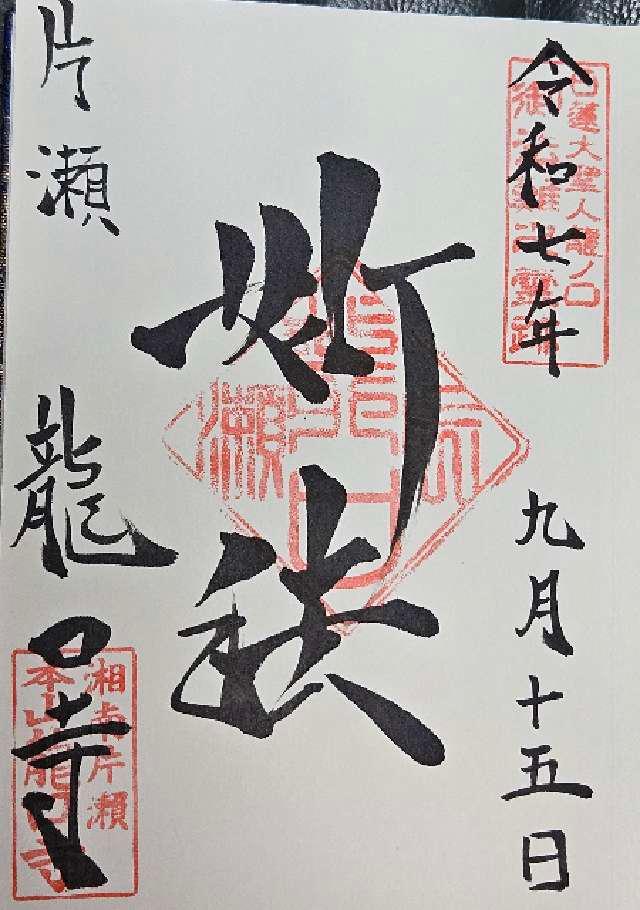 日蓮大聖人龍ノ口
御法難之靈跡
令和七年 九月十五日
妙法
片瀬 龍口寺
湘南片瀬
本山龍口寺